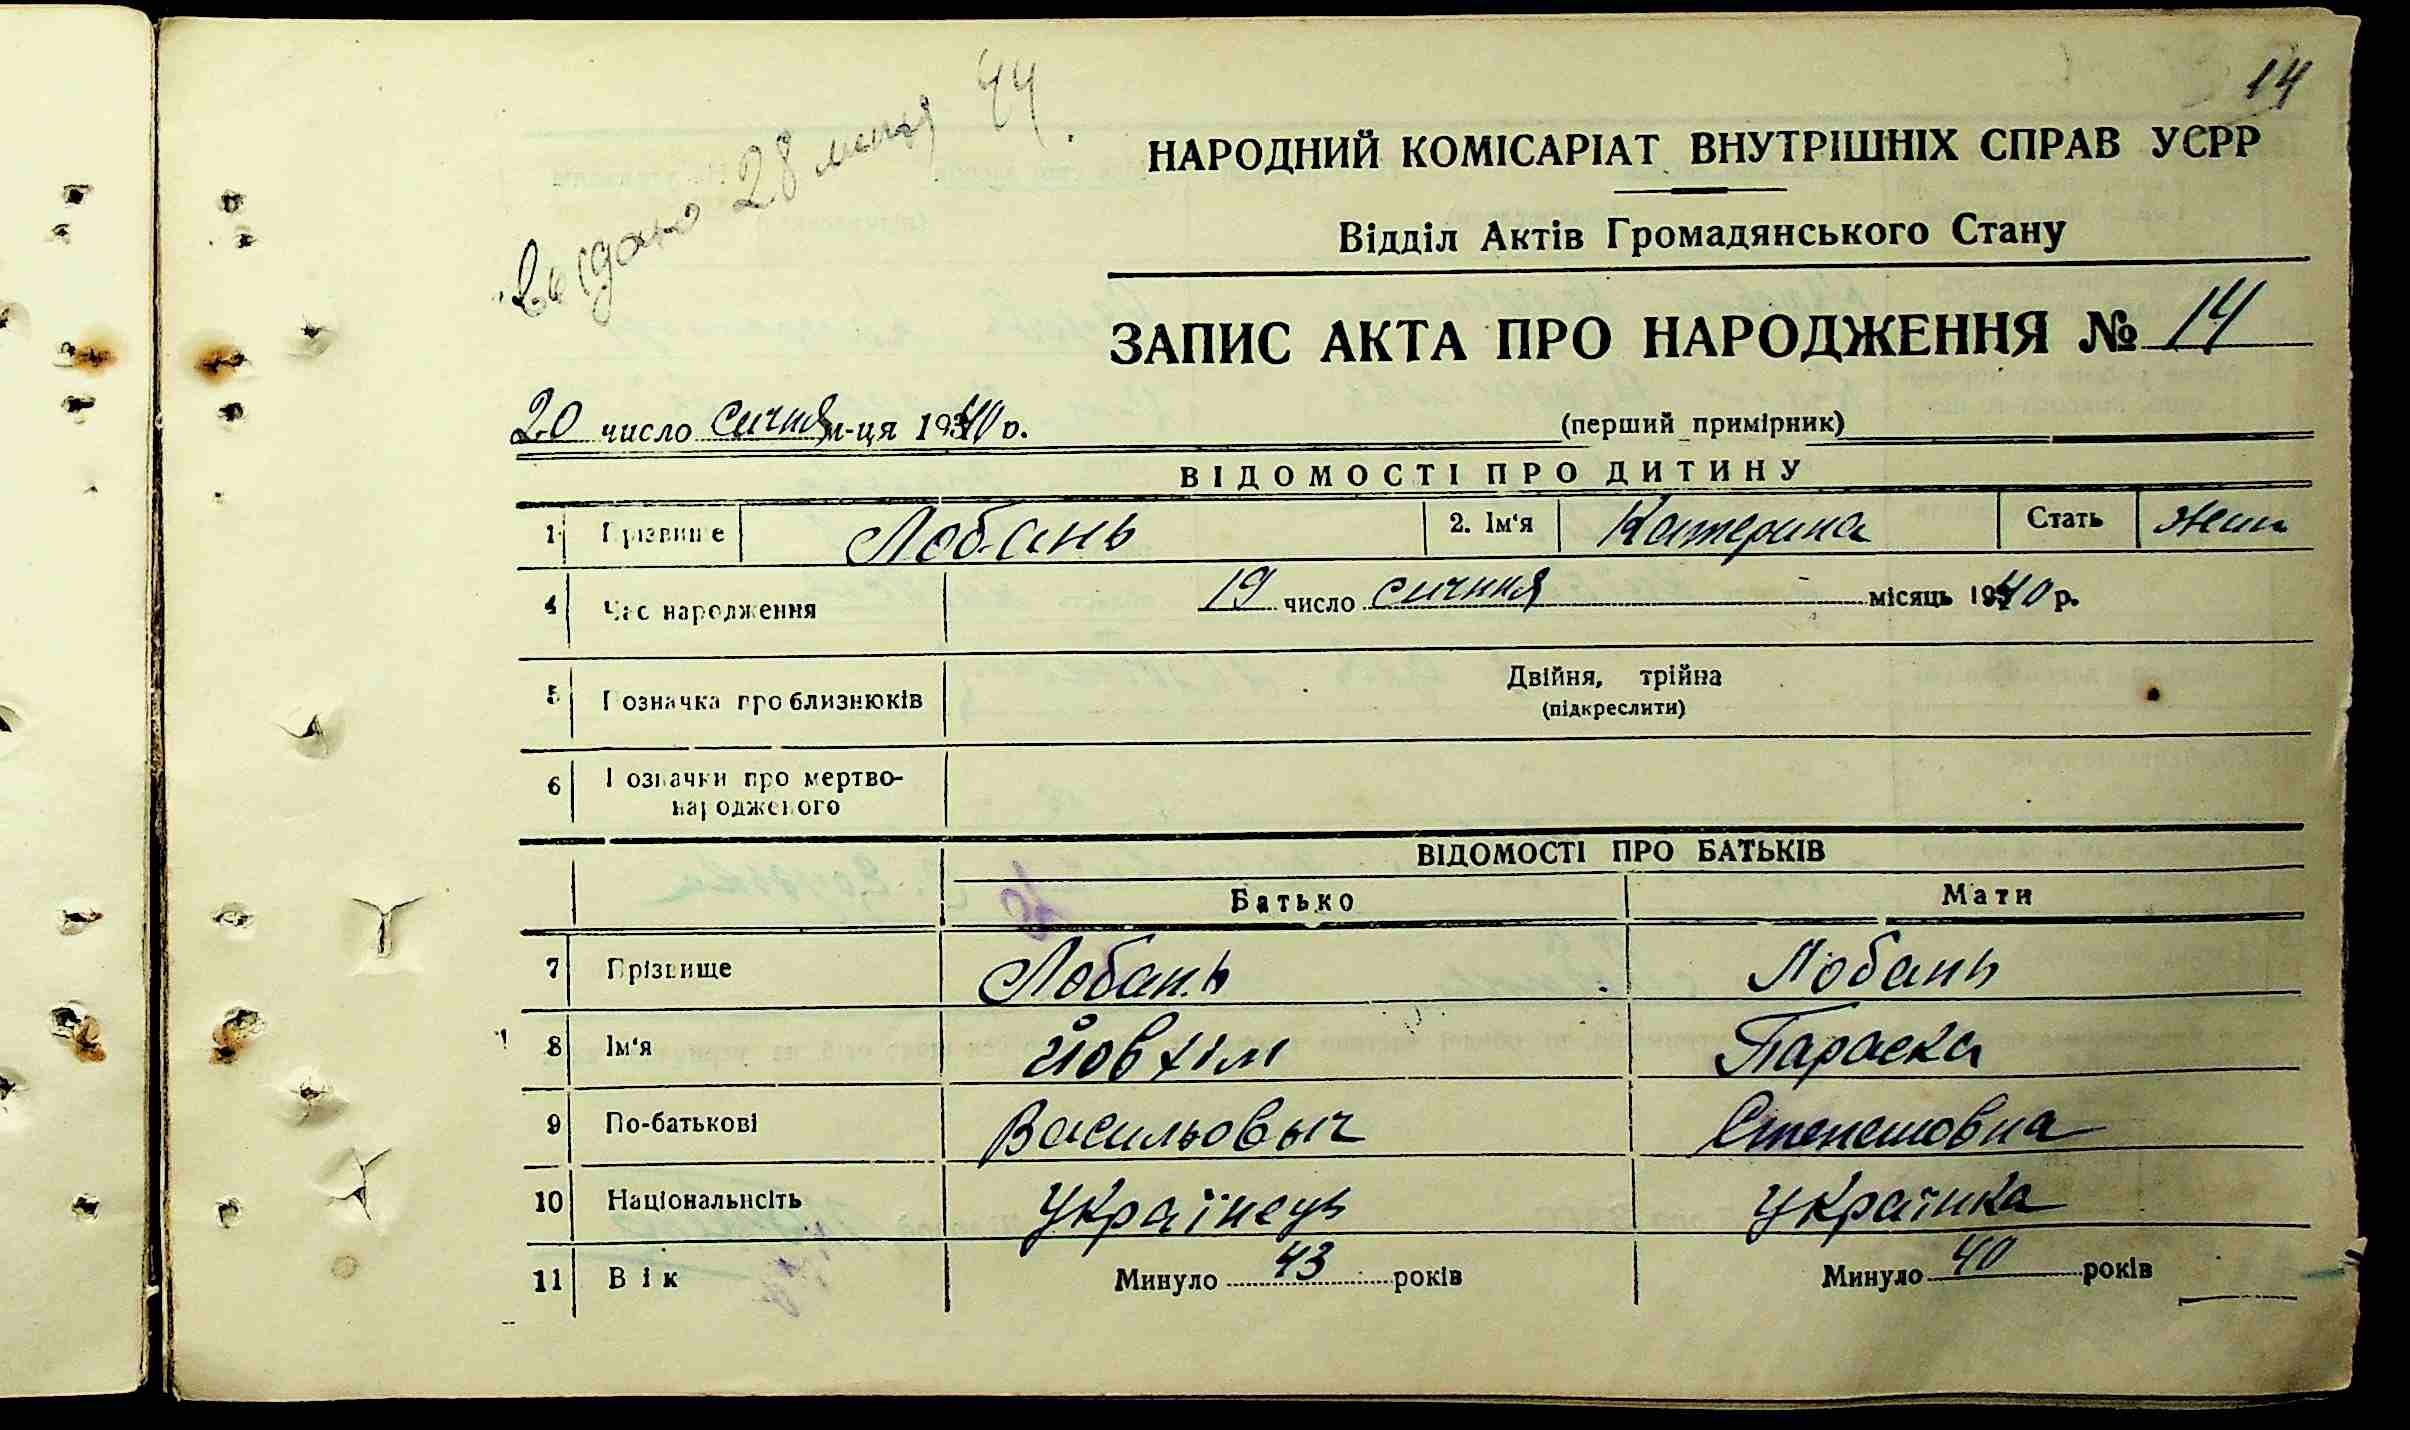 14
видано 28 липня 44
НАРОДНИЙ КОМІСАРІАТ ВНУТРІШНІХ СПРАВ УСРР
Відділ Актів Громадянського Стану
ЗАПИС АКТА ПРО НАРОДЖЕННЯ № 14
20 число січня м-ця 1940 р. (перший примірник)
ВІДОМОСТІ ПРО ДИТИНУ
1 Прізвище Лобань 2. Ім'я Катерина Стать жін
4 Час народження 19 число січння місяць 1940 р.
5 Позначка про близнюків Двійня, трійна
(підкреслити)
6 Позначки про мертво-
народженого
ВІДОМОСТІ ПРО БАТЬКІВ
Батько Мати
7 Прізвище Лобань Лобань
8 Ім'я Йовхім Параска
9 По-батькові Васильовыч
10 Національність Українець Українка
11 Вік Минуло 43 років Минуло 40 років